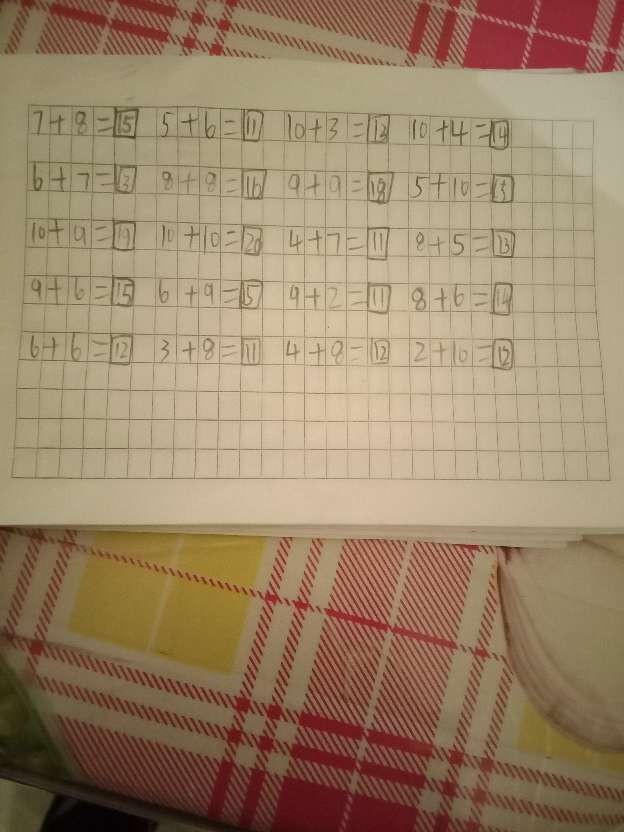 7+8=15 5+6=11 10+3=13 10+4=14
6+7=13 8+8=16 9+9=18 5+10=13
10+9=19 10+10=20 4+7=11 8+5=13
9+6=15 6+9=15 9+2=11 8+6=14
6+6=12 3+8=11 4+8=12 2+10=12